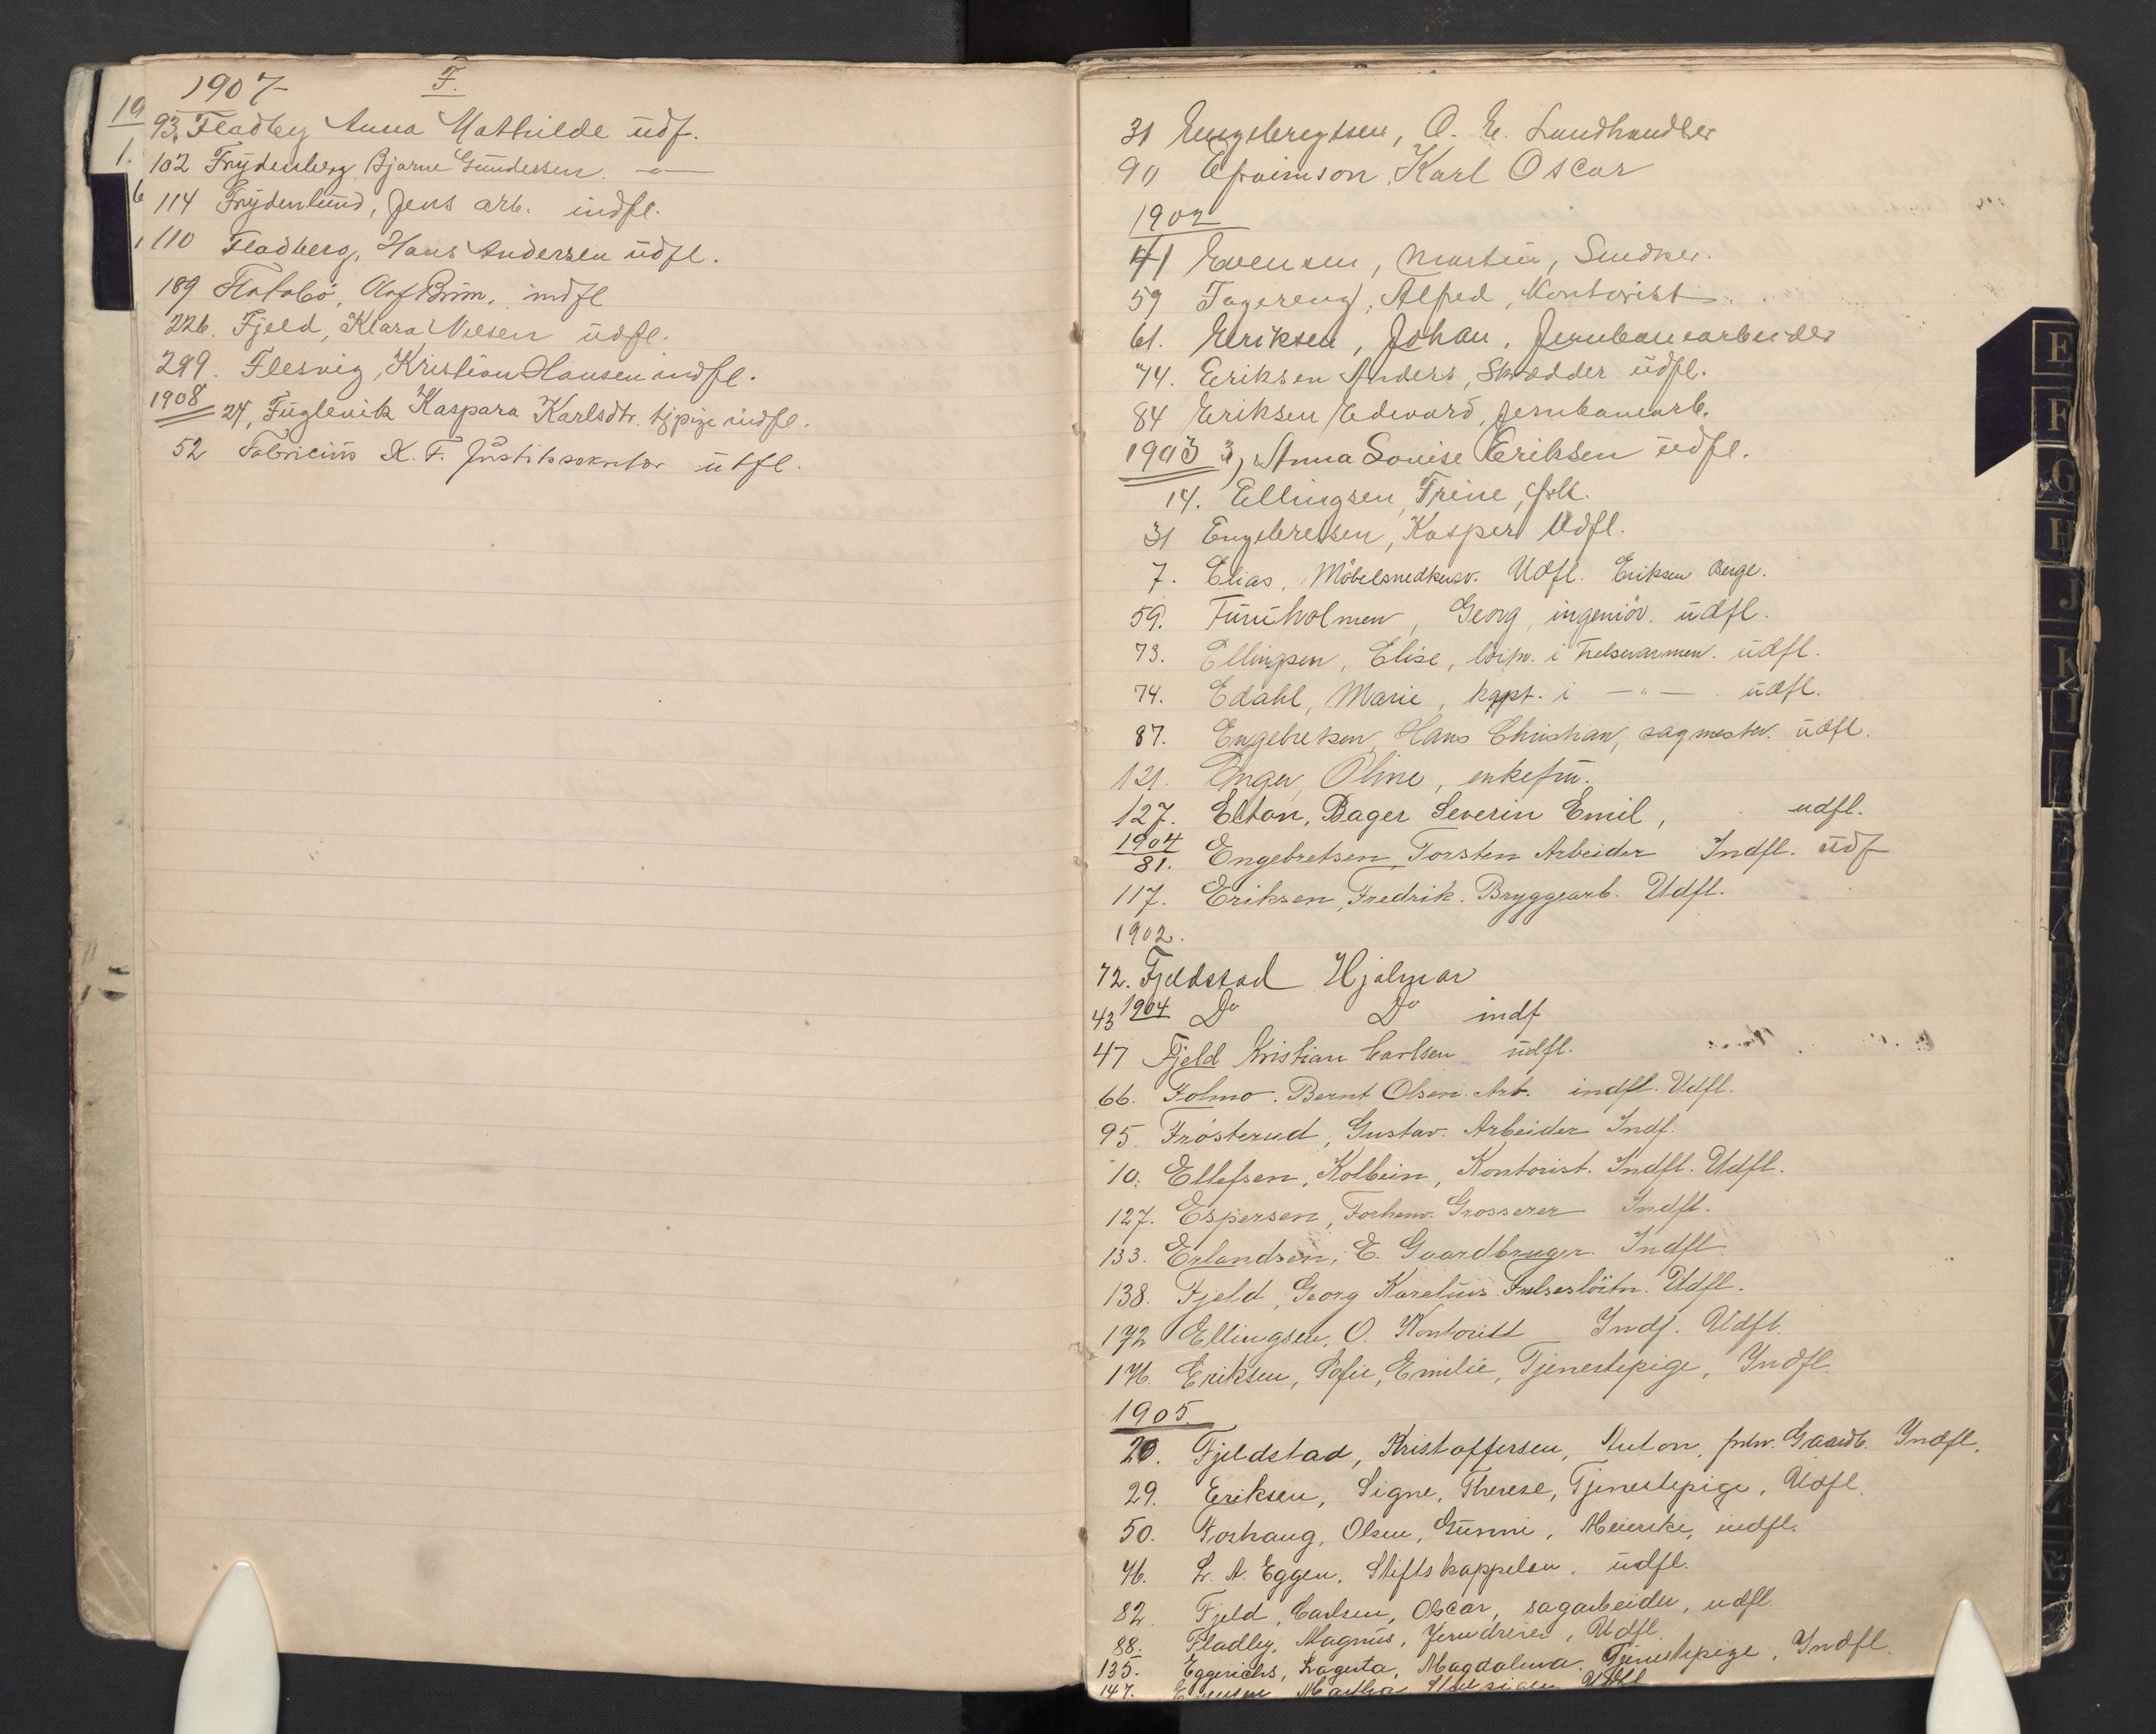 1907 F.
19
93. Fladby Anna Mathilde udf.
1.
102 Frydenberg Bjarne Gundersen. —"—
6
114 Frydenlund, Jens arb. indfl.
110 Fladberg, Hans Andersen udfl.
189 Olaf indfl
226. Fjeld, Klara Nilsen udfl.
299. Flesvig, Kristian Hansen indfl.
1908 24, Fuglevik Kaspara Karlsdtr. tjpige indfl.
52 Fabricius K. F. utfl.
31 Engebregtsen, O. E. Landhandler
90 Efraimson, Karl Oscar
1902
41 Evensen, Martin, Snedker.
59 Fagereng, Alfred, Kontorist
61. Eriksen, Johan, Jernbanearbeider
74. Eriksen Anders, Skrædder udfl.
84 Eriksen Edvard, Jernbanearb.
1903 3, Anna Louise Eriksen udfl.
14. Ellingsen, Trine, frk.
31 Engebretsen, Kasper Udfl.
7. Elias, Möbelsnedkersv. Udfl. Eriksen Berge.
59. Furuholmen, Georg, ingeniör. udfl.
73. Ellingsen, Elise, löitn. i Frelsesarmen. udfl.
74. Edahl, Marie, kapt. i —"— udfl.
87. Engebretsen, Hans Christian, sagmester. udfl.
121. Enger, Oline, enkefru.
127. Elton, Bager Severin Emil, udfl.
1904
81. Engebretsen, Torsten Arbeider Indfl. udf
117. Eriksen, Fredrik. Bryggearb. Udfl.
1902.
72. Fjeldstad Hjalmar
43 1904 Do Do indf
47 Fjeld Kristian Carlsen udfl.
66. Folmo. Bernt Olsen. Arb. indfl. Udfl.
95. Frösterud, Gustav. Arbeider Indf.
10. Ellefsen, Kolbein, Kontorist. Indfl. Udfl.
127. Espersen, Forhenv. Grosserer Indfl.
133. Erlandsen, E. Gaardbruger. Indfl.
138. Fjeld, Georg Karelius Frelseslöitn. Udfl.
172 Ellingsen, O. Kontorist Indf. Udfl.
176. Eriksen, Sofie, Emilie, Tjenestepige, Indfl.
1905.
20. Fjeldstad, Kristoffersen, Anton, fhv. Gaardb. Indfl.
29. Eriksen, Signe, Therese, Tjenestepige, Udfl.
50. Foshaug, Olsen, Gunni, Meierske, indfl.
76. L. A. Eggen, Stiftskappelan, udfl.
82. Fjeld, Carlsen, Oscar, sagarbeider, udfl.
88. Fladby, Magnus, Jerndreier, Udfl.
135. Eggerichs, Lagerta, Magdalena. Tjenestepige, Indfl.
147. Evensen Martha Udfl
E
F
G
H
J
K
L